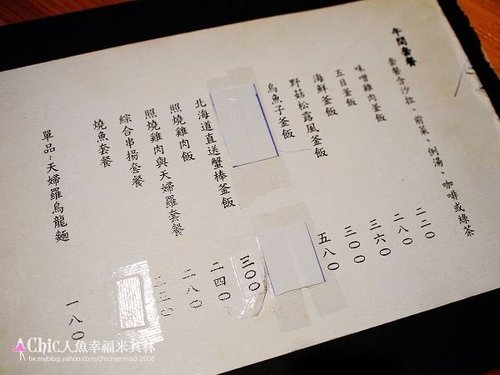 午間套餐
套餐含沙拉、前菜、例湯、咖啡或綠茶
味噌雞肉釜飯 二二〇
五目釜飯 二八〇
海鮮釜飯 三六〇
野菇松露風釜飯 三〇〇
烏魚子釜飯 五八〇
北海道直送蟹棒釜飯 三〇〇
照燒雞肉飯 二四〇
照燒雞肉與天婦羅套餐 二八〇
綜合串揚套餐
燒魚套餐
單品~天婦羅烏龍麵 一八〇
Chic人魚幸福米其林
tw.myblog.yahoo.com/chicmermaid-2005